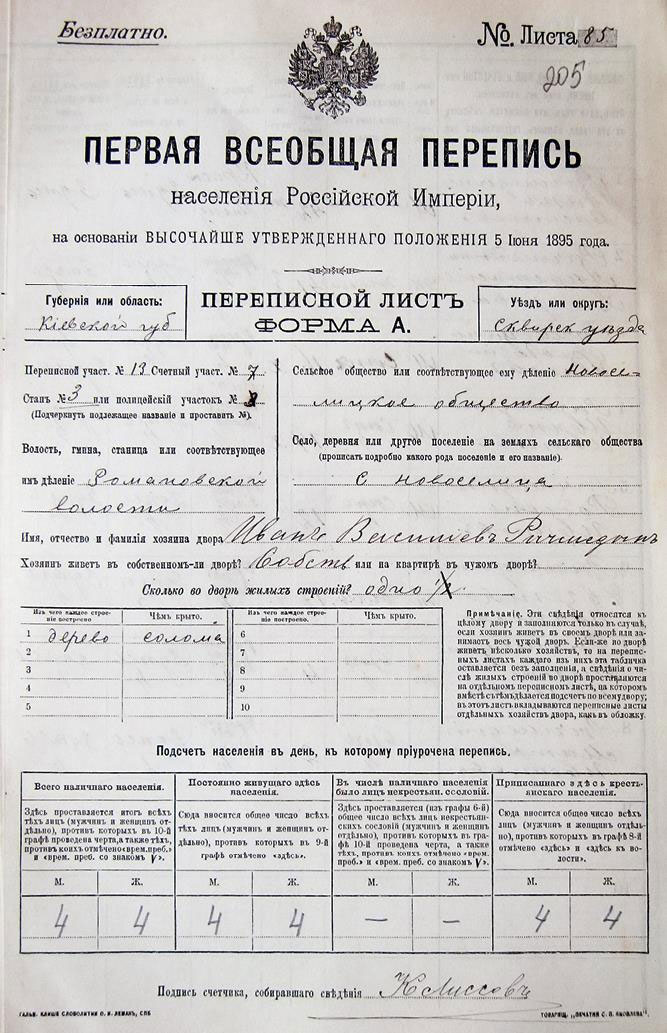 Безплатно.
№. Листа 85
205
ПЕРВАЯ ВСЕОБЩАЯ ПЕРЕПИСЬ
населенія Россійской Имперіи,
на основаніи ВЫСОЧАЙШЕ УТВЕРЖДЕННАГО ПОЛОЖЕНІЯ 5 Іюня 1895 года.
Губернія или область:
Кіевской губ
ПЕРЕПИСНОЙ ЛИСТЪ
ФОРМА А.
Уѣздъ или округъ:
Сквирск уѣзда
Переписной участ. № 13 Счетный участ. № 7
Станъ № 3 или полицейскій участокъ №
(Подчеркнуть подлежащее названіе и проставить №).
Волость, гмина, станица или соотвѣтствующее
имъ дѣленіе Романовской
волости
Сельское общество или соотвѣтствующее ему дѣленіе Новосе-
лицкое общество
Село, деревня или другое поселеніе на земляхъ сельскаго общества
(прописать подробно какого рода поселеніе и его названіе).
с Новоселица
Имя, отчество и фамилія хозяина двора Иванъ Васильевъ
Хозяинъ живетъ въ собственномъ-ли дворѣ? Собств или на квартирѣ въ чужомъ дворѣ?
Сколько во дворѣ жилыхъ строеній? одно
Изъ чего каждое строе-
ніе построено
Чѣмъ крыто.
Изъ чего каждое строе-
ніе построено
Чѣмъ крыто.
1 дерево солома 6
2 7
3 8
4 9
5 10
Примѣчаніе. Эти свѣдѣнія относятся къ
цѣлому двору и заполняются только въ случаѣ,
если хозяинъ живетъ въ своемъ дворѣ или за-
нимаетъ весь чужой дворъ. Если-же во дворѣ
живетъ нѣсколько хозяйствъ, то на перепис-
ныхъ листахъ каждаго изъ нихъ эта табличка
оставляется безъ заполненія, а свѣдѣнія о чи-
слѣ жилыхъ строеній во дворѣ проставляются
на отдѣльномъ переписномъ листѣ, на которомъ
вмѣстѣ съ тѣмъ дѣлается подсчетъ по всему двору;
въ этотъ листъ вкладываются переписные листы
отдѣльныхъ хозяйствъ двора, какъ въ обложку.
Подсчетъ населенія въ день, къ которому пріурочена перепись.
Всего наличнаго населенія.
Здѣсь проставляется итогъ всѣхъ
тѣхъ лицъ (мужчинъ и женщинъ от-
дѣльно), противъ которыхъ въ 10-й
графѣ проведена черта, а также тѣхъ,
противъ коихъ отмѣчено «врем. преб.»
и «врем. преб. со знакомъ V».
Постоянно живущаго здѣсь
населенія.
Сюда вносится общее число всѣхъ
тѣхъ лицъ (мужчинъ и женщинъ от-
дѣльно), противъ которыхъ въ 9-й
графѣ отмѣчено «здѣсь».
Въ числѣ наличнаго населенія
было лицъ некрестьян. сословій.
Здѣсь проставляется (изъ графы 6-й)
общее число всѣхъ лицъ некрестьян-
скихъ сословій (мужчинъ и женщинъ
отдѣльно), противъ которыхъ въ гра-
фѣ 10-й проведена черта, а также
тѣхъ, противъ коихъ отмѣчено «врем.
преб.» и «врем. преб. со знакомъ V».
Приписаннаго здѣсь кресть-
янскаго населенія.
Сюда вносится общее число всѣхъ
лицъ (мужчинъ и женщинъ отдѣль-
но), противъ которыхъ въ графѣ 8-й
отмѣчено «здѣсь» и «здѣсь къ во-
лости».
М. Ж. М. Ж. М. Ж. М. Ж.
4 4 4 4 — — 4 4
Подпись счетчика, собиравшаго свѣдѣнія
ГАЛЬВ. КЛИШЕ СЛОВОЛИТНИ О. И. ЛЕМАНЪ, СПБ
ТОВАРИЩ. „ПЕЧАТНЯ С. П. ЯКОВЛЕВА".